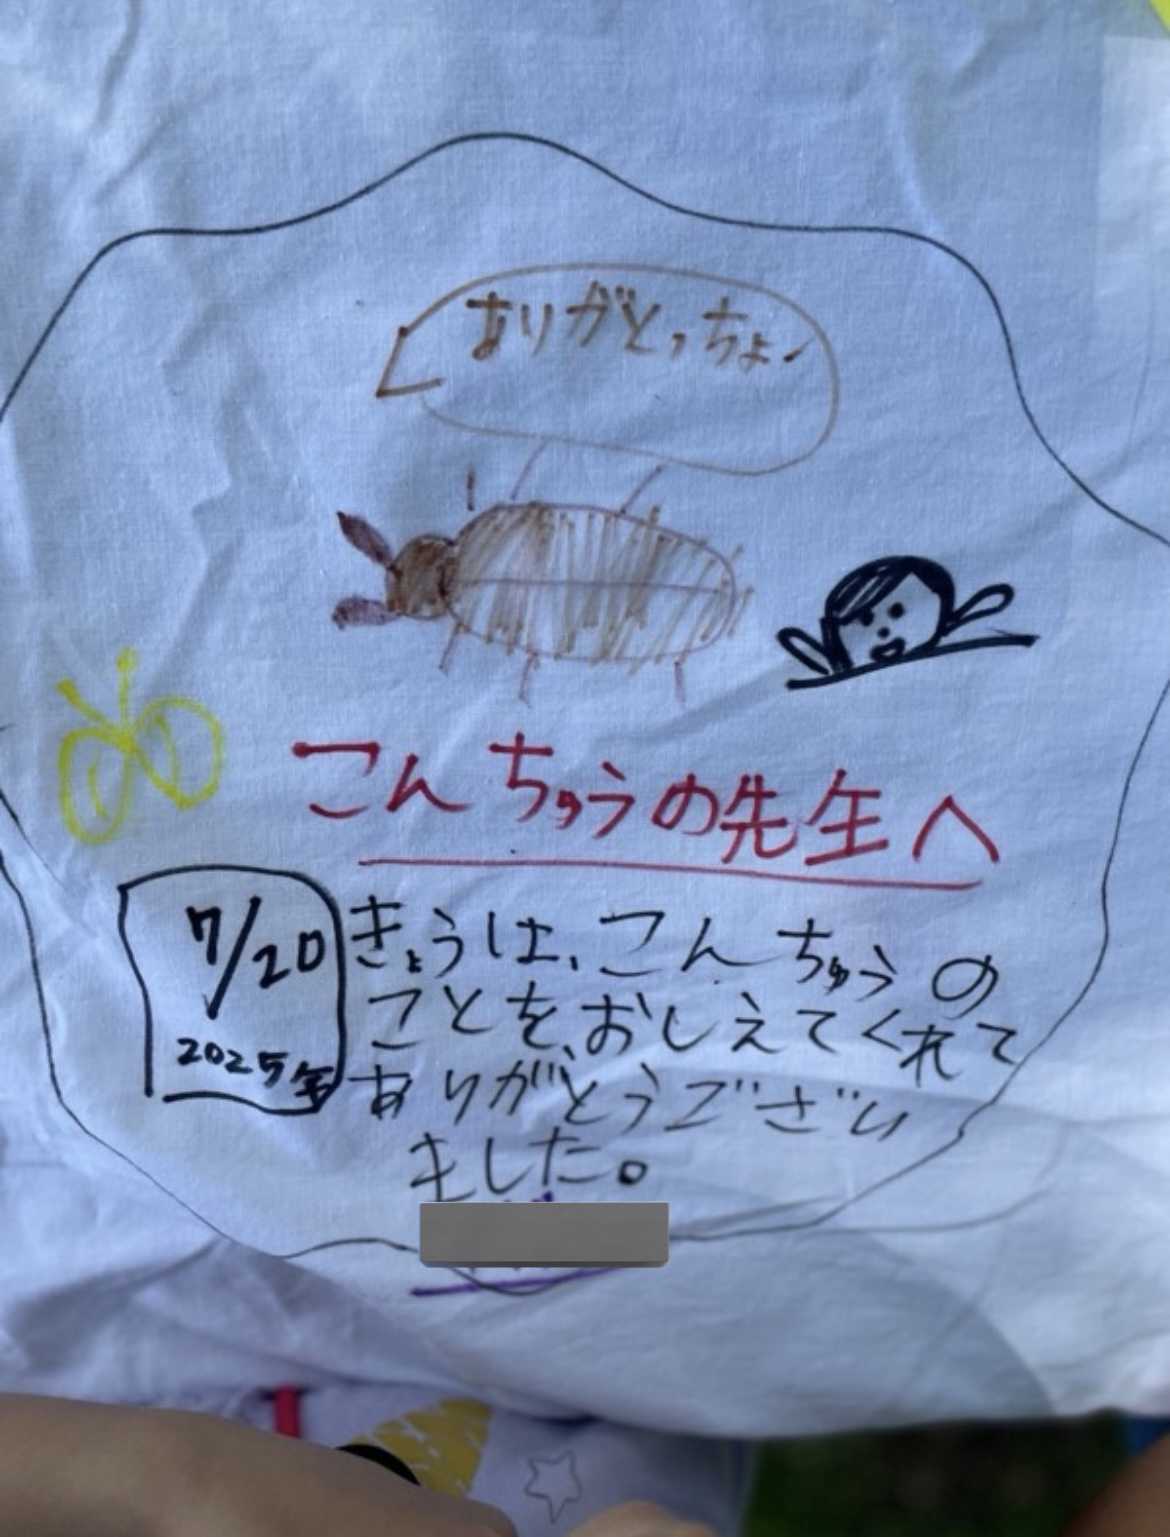 ありがとっちょ
こんちゅうの先生へ
7/20
2025年
きょうは、こんちゅうの
ことを、おしえてくれて
ありがとうござい
ました。